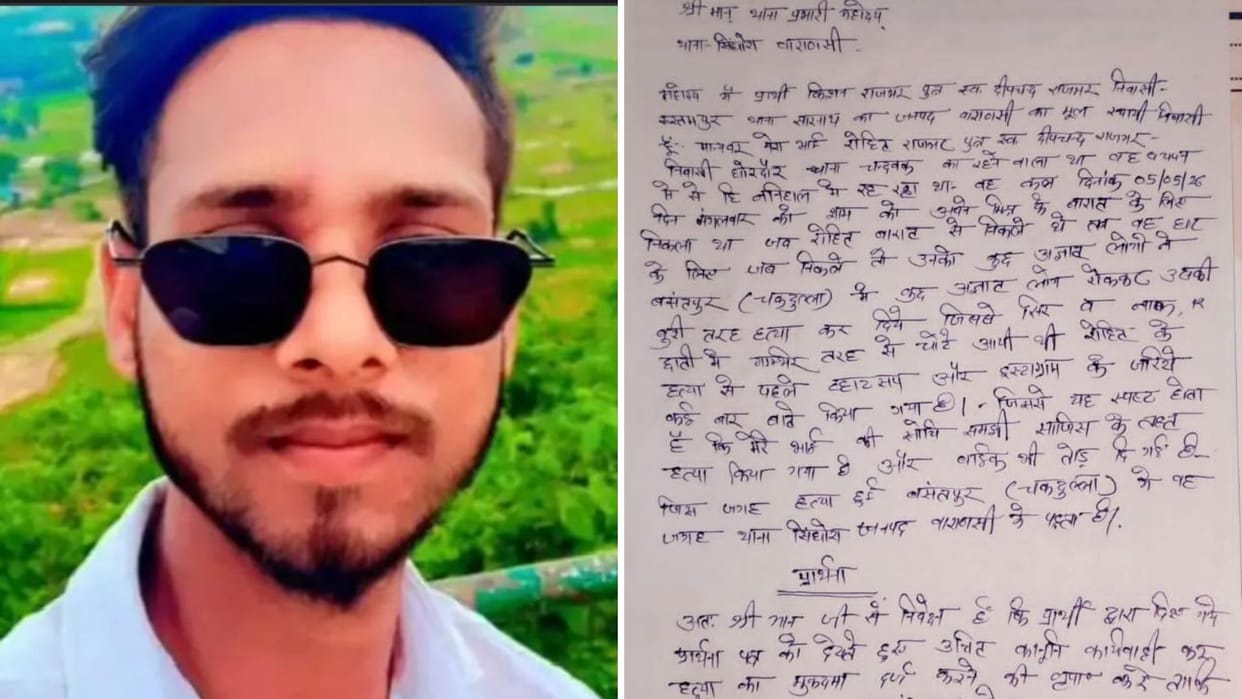 श्रीमान् थाना प्रभारी महोदय्
थाना-सिंधोरा वाराणसी.
महोदय में प्रार्थी किशन राजभर पुत्र स्व दीपचंद राजभर निवासी-
रुस्तमपुर थाना सारनाथ का जनपद वाराणसी का मूल स्थायी निवासी
हूँ- मान्यवर मेरा भाई रोहित राजभर पुत्र स्व दीपचन्द राजभर-
निवासी थाना चन्दवक का रहने वाला था वह बचपन
से से हि ननिहाल में रह रहा था- वह कल दिनांक 05/05/26
दिन मंगलवार को शाम को अपने मित्र के बारात के लिए
निकला था जब रोहित बारात से निकले थे तब वह घर
के लिए जब निकले तो उनको कुछ अज्ञात लोगो ने
बसंतपुर (चकदुल्ला) में कुछ अज्ञात लोग रोककर उसकी
बुरी तरह हत्या कर दिये जिससे सिर व नाक,
छाती में गम्भिर तरह से चोटे आयी थी रोहित के
हत्या से पहले व्हाटसप और इस्टाग्राम के जरिये
कई बार बाते किया गया है। जिससे यह स्पष्ट होता
है कि मेरे भाई की सोचि समझी साजिस के तहत
हत्या किया गया है और बाईक भी तोड़ दि गई है।
जिस जगह हत्या हुई बसंतपुर (चकदुल्ला) में वह
जगह थाना सिंधोरा जनपद वाराणसी के पड़ता है।
प्रार्थना
अतः श्री मान जी से निवेदन है कि प्रार्थी द्वारा दिए गये
प्रार्थना पत्र को देखते हुए उचित कानूनि कार्यवाही कर
हत्या का मुकदमा दर्ज करने की कृपा करे ताकि